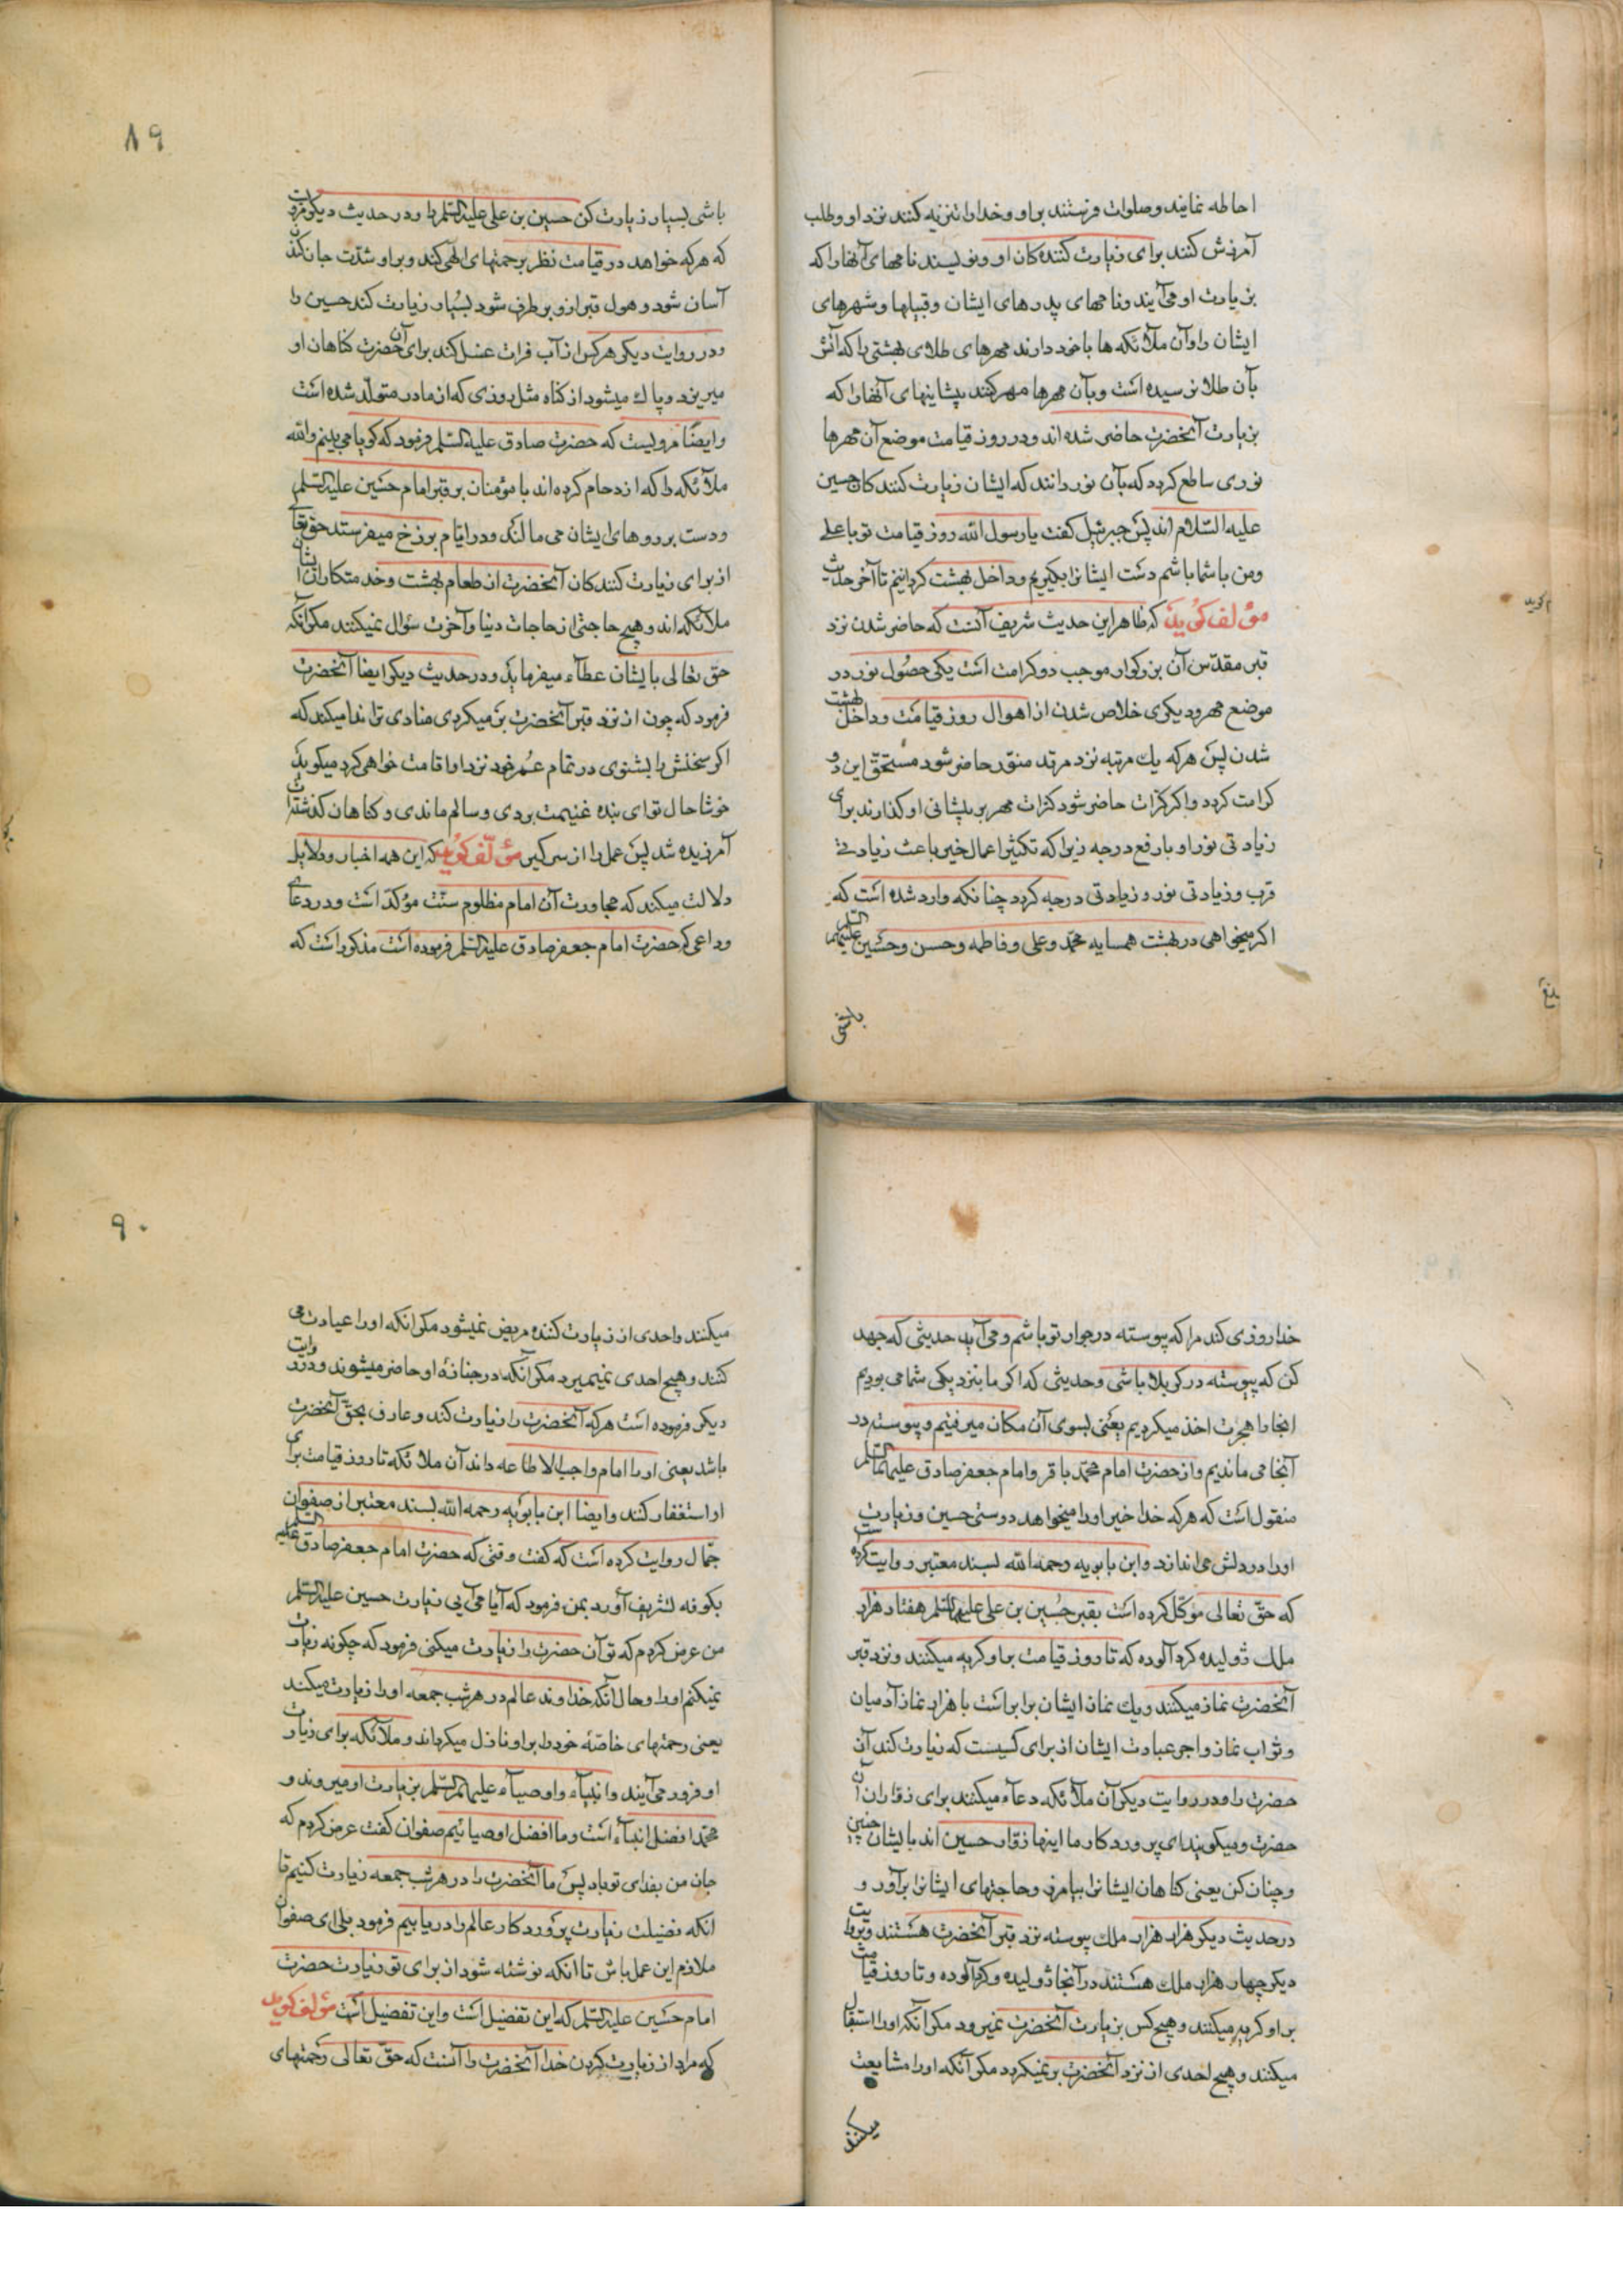 احاطه نمایند و صلوات فرستند براو و خدا را تنزیه کنند نزد او و طلب
آمرزش کنند برای زیارت کننده کان او و نویسند نامهای آنها را که
بزیارت او می آیند و نامهای پدرهای ایشان و قبیلها و شهرهای
ایشان را و آن ملائکه ها با خود دارند مهرهای طلای بهشتی را که آتش
بآن طلا نرسیده است و بآن مهرها مهر کنند پیشانیهای آنها را که
بزیارت آنحضرت حاضر شده اند و در روز قیامت موضع آن مهرها
نوری ساطع کردد که بآن نور دانند که ایشان زیارت کنندکان حسین
علیه السّلام اند پس جبرئیل کفت یا رسول الله روز قیامت تو با علی
و من با شما باشم دست ایشانرا بکیریم و داخل بهشت کردانیم تا آخر حدیث
مؤلف کوید که ظاهر این حدیث شریف آنست که حاضر شدن نزد
قبر مقدّس آن بزرکوار موجب دو کرامت است یکی حصول نور در
موضع مهر و دیکری خلاص شدن از اهوال روز قیامت و داخل بهشت
شدن پس هر که یك مرتبه نزد مرقد منوّر حاضر شود مستحقّ این دو
کرامت کردد و اکر کرّات حاضر شود کرّات مهر بر پیشانی او کذارند برای
زیادتی نور او یا رفع درجه زیرا که تکثیر اعمال خیر باعث زیادتی
قرب و زیادتی نور و زیادتی درجه کردد چنانکه وارد شده است که
اکر میخواهی در بهشت همسایه محمّد و علی و فاطمه و حسن و حسین علیهم السلم
باشی
۸۹
باشی بسیار زیارت کن حسین بن علی علیه السّلم را و در حدیث دیکر فرمود
که هر که خواهد در قیامت نظر برحمتهای الهی کند و براو شدّت جان کندن
آسان شود و هول قبر ازو برطرف شود بسیار زیارت کند حسین را
و در روایت دیکر هر کس از آب فرات غسل کند برای آن حضرت کناهان او
میریزد و پاك میشود از کناه مثل روزی که از مادر متولّد شده است
و ایضًا مرویست که حضرت صادق علیه السّلم فرمود که کویا می بینم والله
ملائکه را که ازدحام کرده اند با مؤمنان بر قبر امام حسین علیه السّلم
و دست بر روهای ایشان می مالند و در ایّام برزخ میفرستد حق تعالی
از برای زیارت کنندکان آنحضرت از طعام بهشت و خدمتکاران ایشان
ملائکه اند و هیچ حاجتی از حاجات دنیا و آخرت سؤال نمیکنند مکر آنکه
حق تعالی بایشان عطاء میفرماید و در حدیث دیکر ایضا آنحضرت
فرمود که چون از نزد قبر آنحضرت بر میکردی منادی ترا ندا میکند که
اکر سخنش را بشنوی در تمام عمر خود نزد او اقامت خواهی کرد میکوید
خوشا حال تو ای بنده غنیمت بردی و سالم ماندی و کناهان کذشته ات
آمرزیده شد پس عمل را از سر کیر مؤلّف کوید که این همه اخبار و دلایل
دلالت میکند که مجاورت آن امام مظلوم سنّت مؤکّد است و در دعای
وداعی که حضرت امام جعفر صادق علیه السّلم فرموده است مذکور است که
خدا روزی کند مرا که پیوسته در جوار تو باشم و می آید حدیثی که جهد
کن که پیوسته در کربلا باشی و حدیثی که اکر ما بنزدیکی شما می بودیم
اینجا را هجرت اخذ میکردیم یعنی بسوی آن مکان میرفتیم و پیوسته در
آنجا می ماندیم و از حضرت امام محمّد باقر و امام جعفر صادق علیهما السّلم
منقول است که هر که خدا خیر او را میخواهد دوستی حسین و زیارت
او را در دلش می اندازد و ابن بابویه رحمه الله بسند معتبر روایت کرده است
که حقّ تعالی موکّل کرده است بقبر حُسین بن علی علیهما السّلم هفتاد هزار
ملك ژولیده کرد آلوده که تا روز قیامت بر او کریه میکنند و نزد قبر
آنحضرت نماز میکنند و یك نماز ایشان برابر است با هزار نماز آدمیان
و ثواب نماز و اجر عبادت ایشان از برای کسیست که زیارت کند آن
حضرت را و در روایت دیکر آن ملائکه دعاء میکنند برای زوّاران آن
حضرت و میکویند ای پروردکار ما اینها زوّار حسین اند بایشان چنین
و چنان کن یعنی کناهان ایشانرا بیامرز و حاجتهای ایشانرا برآور و
در حدیث دیکر هزار هزار ملك پیوسته نزد قبر آنحضرت هستند و بروایت
دیکر چهار هزار ملك هستند در آنجا ژولیده و کرد آلوده و تا روز قیامت
بر او کریه میکنند و هیچ کس بزیارت آنحضرت نمیرود مکر آنکه او را استقبال
میکنند و هیچ احدی از نزد آنحضرت بر نمیکردد مکر آنکه او را مشایعت
میکنند
۹۰
میکنند و احدی از زیارت کننده مریض نمیشود مکر انکه او را عیادت می
کنند و هیچ احدی نمیمیرد مکر آنکه در جنازۀ او حاضر میشوند و در روایت
دیکر فرموده است هر که آنحضرت را زیارت کند و عارف بحقّ آنحضرت
باشد یعنی او را امام واجب الاطاعه داند آن ملائکه تا روز قیامت برای
او استغفار کنند و ایضا ابن بابویه رحمه الله بسند معتبر از صفوان
جمّال روایت کرده است که کفت وقتی که حضرت امام جعفر صادق علیه السلم
بکوفه تشریف آورد بمن فرمود که آیا می آیی زیارت حسین علیه السّلم
من عرض کردم که تو آن حضرت را زیارت میکنی فرمود که چکونه زیارت
نمیکنم او را و حال آنکه خداوند عالم در هر شب جمعه او را زیارت میکند
یعنی رحمتهای خاصّه خود را بر او نازل میکرداند و ملائکه برای زیارت
او فرود می آیند و انبیاء و اوصیاء علیهم السّلم بزیارت او میروند و
محمّد افضل انبیاء است و ما افضل اوصیائیم صفوان کفت عرض کردم که
جان من بفدای تو باد پس ما آنحضرت را در هر شب جمعه زیارت کنیم تا
انکه فضیلت زیارت پروردکار عالم را دریابیم فرمود بلی ای صفوان
ملازم این عمل باش تا آنکه نوشته شود از برای تو زیارت حضرت
امام حسین علیه السّلم که این تفضیل است و این تفضیل است مؤلف کوید
که مراد از زیارت کردن خدا آنحضرت را آنست که حقّ تعالی رحمتهای